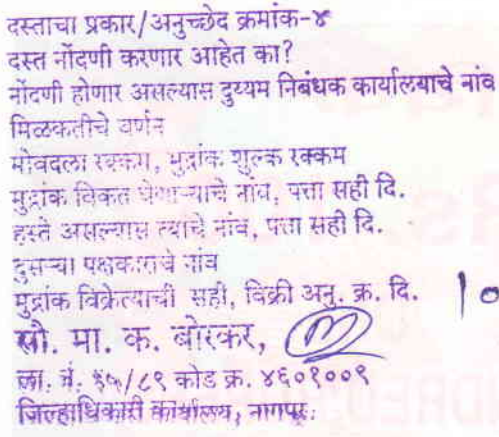 दस्ताचा प्रकार/अनुच्छेद क्रमांक-४
दस्त नोंदणी करणार आहेत का?
नोंदणी होणार असल्यास दुय्यम निबंधक कार्यालयाचे नांव
मिळकतीचे वर्णन
मोबदला रक्कम, मुद्रांक शुल्क रक्कम
मुद्रांक विकत घेणाऱ्याचे नांव, पत्ता सही दि.
हस्ते असल्यास त्याचे नांव, पत्ता सही दि.
दुसऱ्या पक्षकाराचे नांव
मुद्रांक विक्रेत्याची सही, विक्री अनु. क्र. दि.
सौ. मा. क. बोरकर,
ला. नं. ३५/८९ कोड क्र. ४६०१००९
जिल्हाधिकारी कार्यालय, नागपूर.